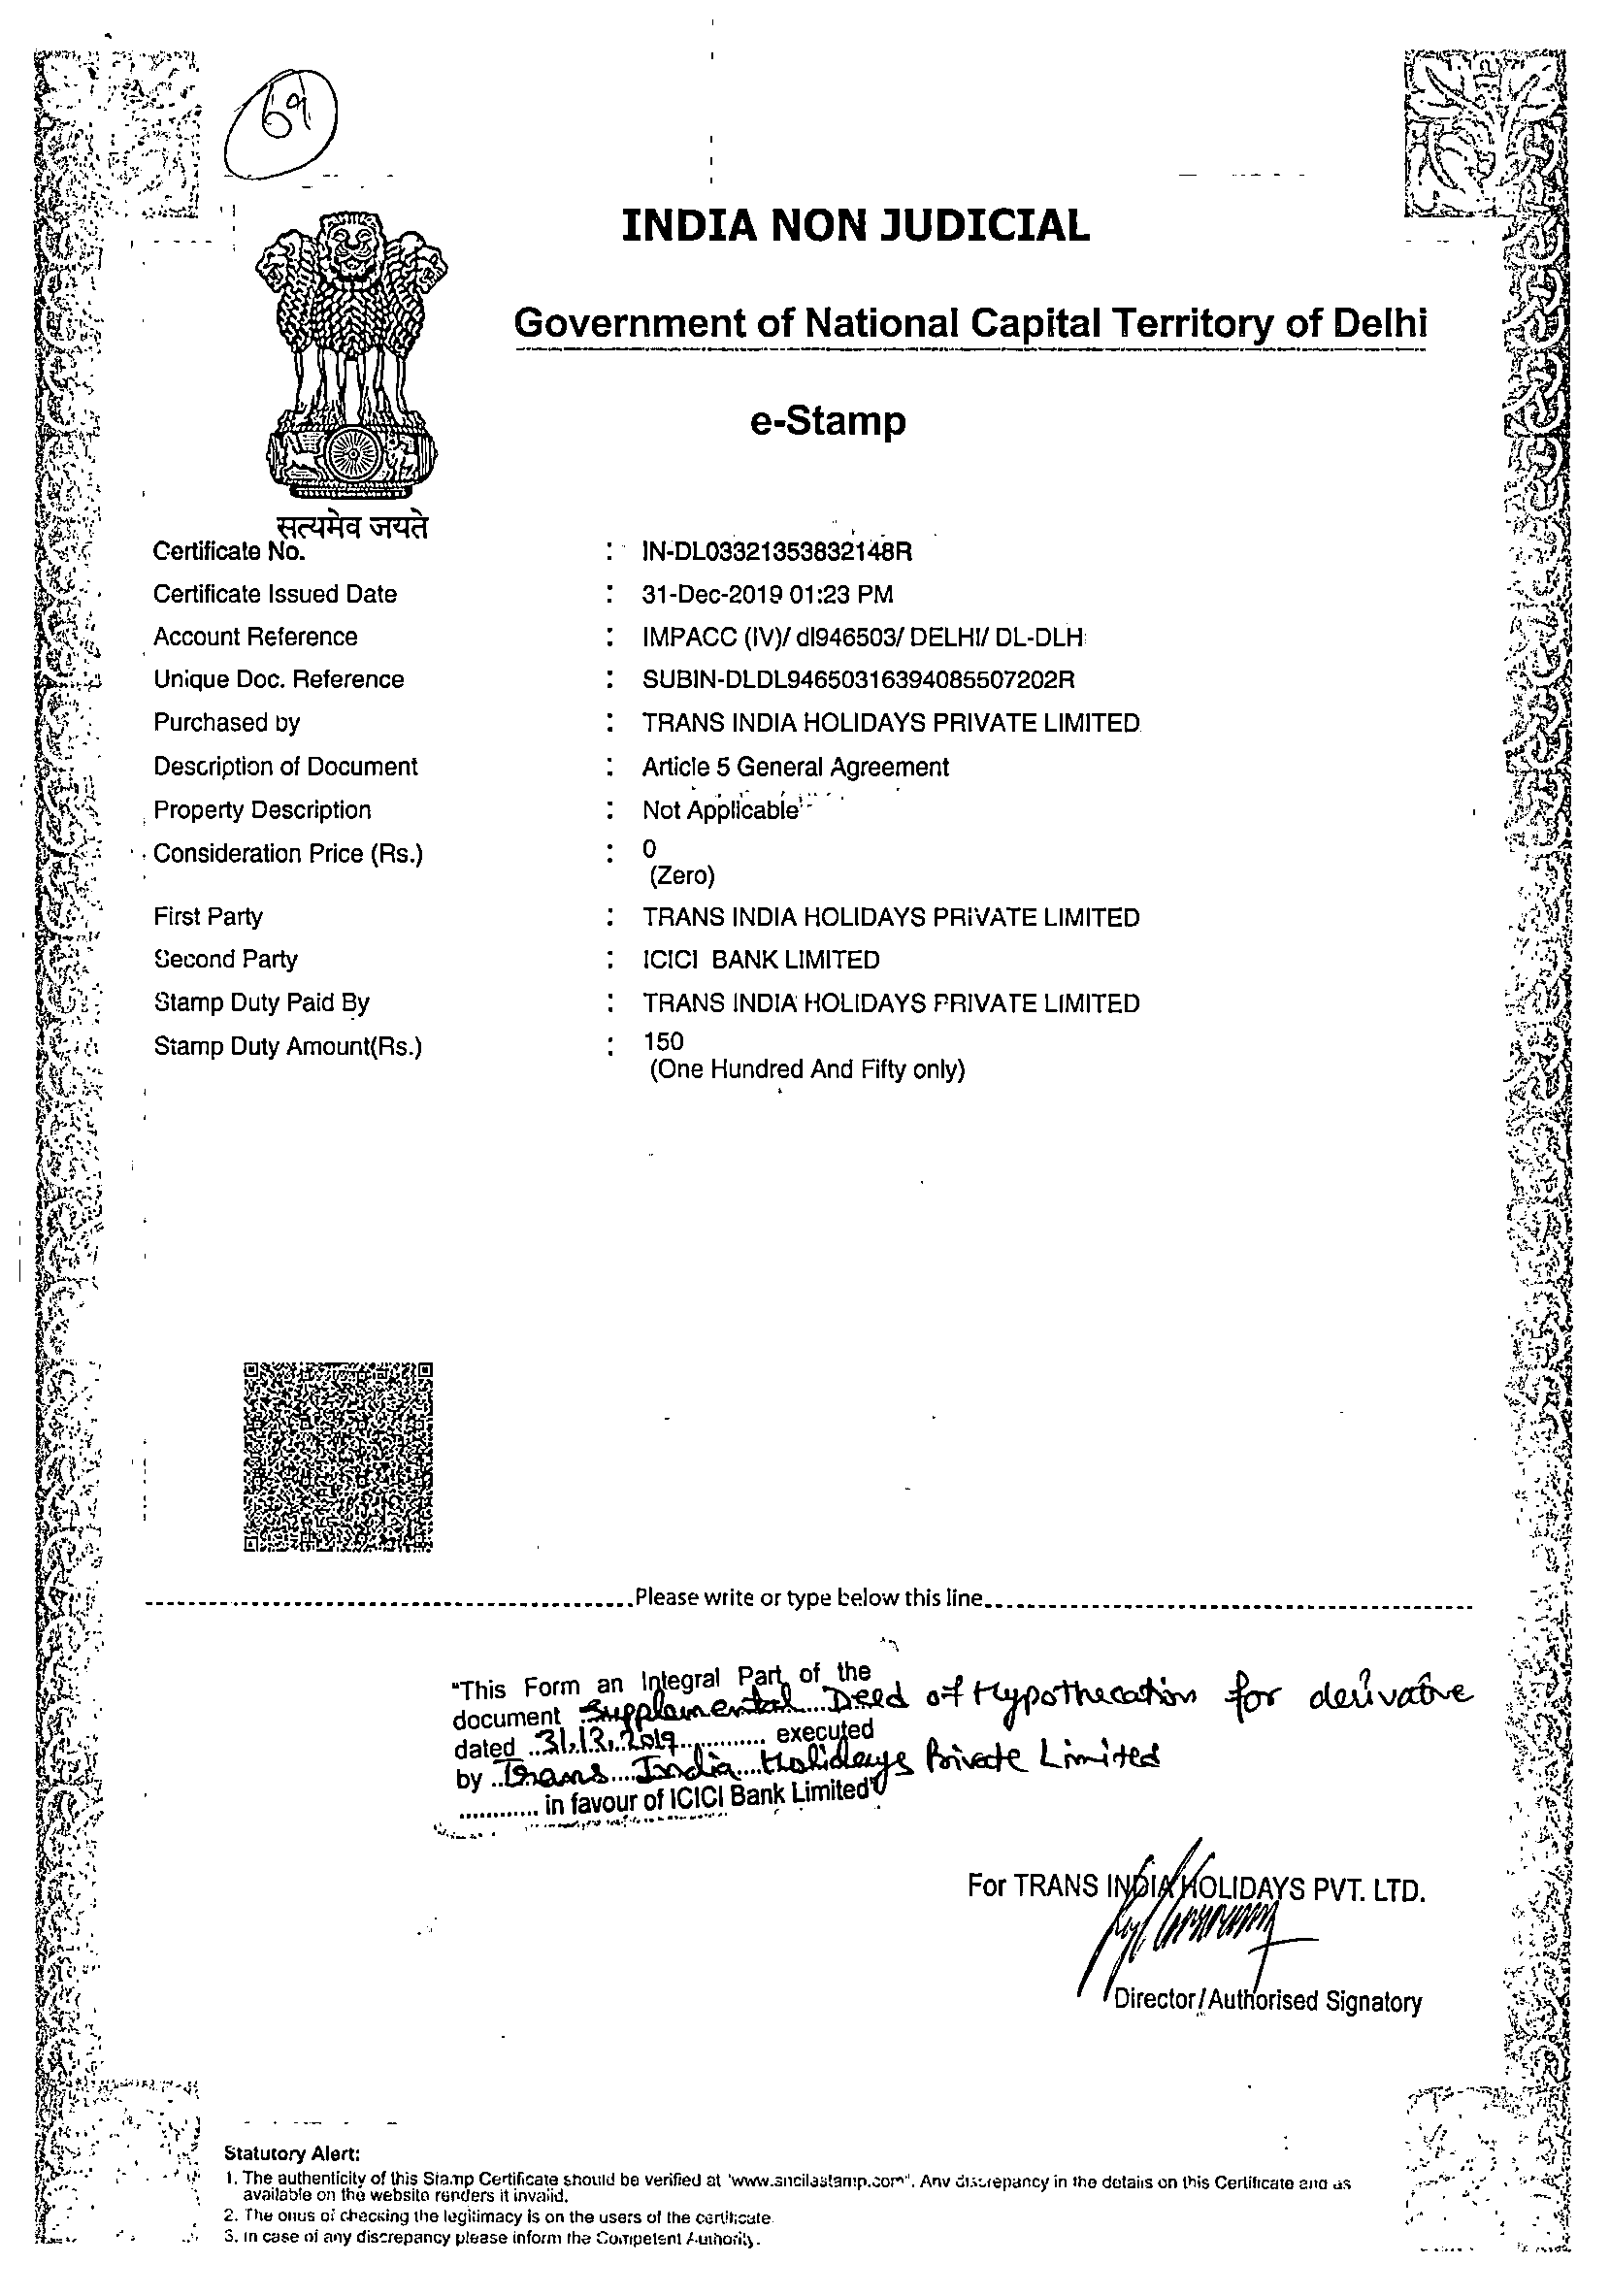 69
INDIA NON JUDICIAL
Government of National Capital Territory of Delhi
e-Stamp
सत्यमेव जयते
Certificate No. : IN-DL03321353832148R
Certificate Issued Date : 31-Dec-2019 01:23 PM
Account Reference : IMPACC (IV)/ dl946503/ DELHI/ DL-DLH
Unique Doc. Reference : SUBIN-DLDL94650316394085507202R
Purchased by : TRANS INDIA HOLIDAYS PRIVATE LIMITED
Description of Document : Article 5 General Agreement
Property Description : Not Applicable
Consideration Price (Rs.) : 0
(Zero)
First Party : TRANS INDIA HOLIDAYS PRIVATE LIMITED
Second Party : ICICI BANK LIMITED
Stamp Duty Paid By : TRANS INDIA HOLIDAYS PRIVATE LIMITED
Stamp Duty Amount(Rs.) : 150
(One Hundred And Fifty only)
Please write or type below this line
"This Form an Integral Part of the
document Supplemental Deed of Hypothecation for derivative
dated 31.12.2019 executed
by Trans India Holidays Private Limited
............ in favour of ICICI Bank Limited"
For TRANS INDIA HOLIDAYS PVT. LTD.
Director/Authorised Signatory
Statutory Alert:
1. The authenticity of this Stamp Certificate should be verified at "www.shcilestamp.com". Any discrepancy in the details on this Certificate and as
available on the website renders it invalid.
2. The onus of checking the legitimacy is on the users of the certificate.
3. In case of any discrepancy please inform the Competent Authority.